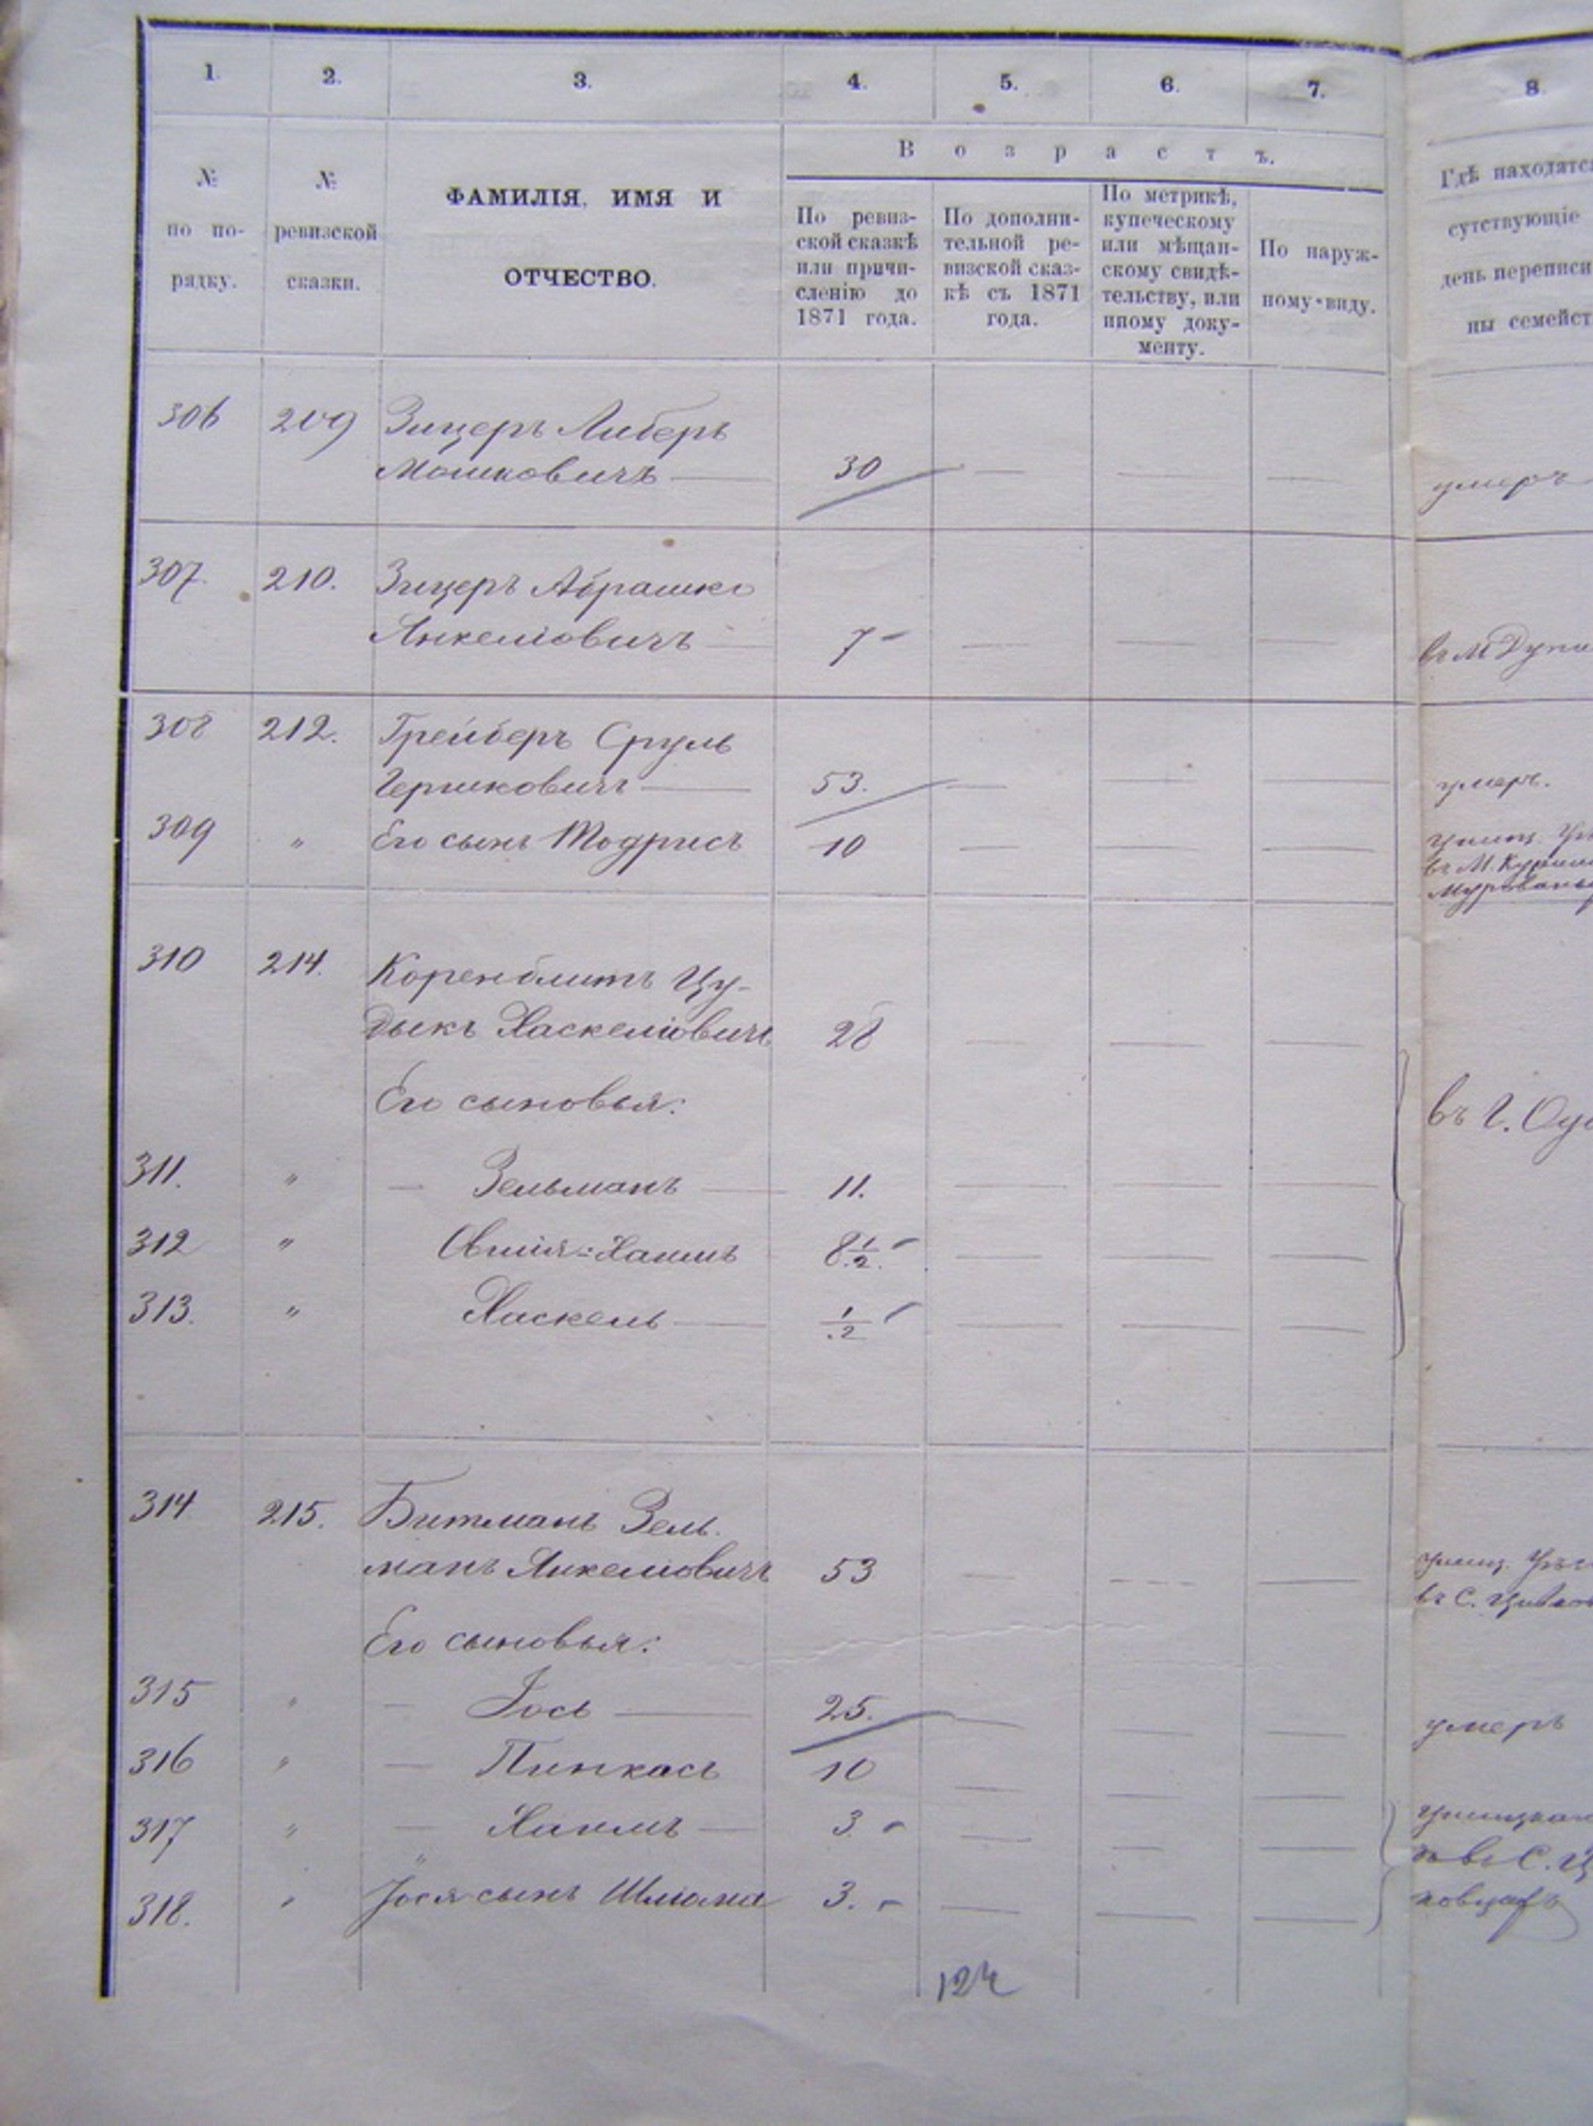 1. 2. 3. 4. 5. 6. 7. 8.
В о з р а с т ъ.
№ по по-рядку.
№ ревизской сказки.
ФАМИЛІЯ, ИМЯ И
ОТЧЕСТВО.
По ревиз-
ской сказкѣ
или причи-
сленію до
1871 года.
По дополни-
тельной ре-
визской сказ-
кѣ съ 1871
года.
По метрикѣ,
купеческому
или мѣщан-
скому свидѣ-
тельству, или
иному доку-
менту.
По наруж-
ному виду.
Гдѣ находятс
сутствующіе
день переписи
ны семейст
306 209 Зицеръ Либеръ
Мошковичъ — 30 — — — умеръ
307. 210. Зицеръ Абрашко
Янкеліовичъ — 7 — — — въ М
308 212. Грейберъ Сруль
Гершковичъ — 53. — — — умеръ.
309 " Его сынъ Тодрисъ 10 — — —
въ М.
310 214. Коренблитъ Цу-
дыкъ Хаскеліовичъ 28 — — —
Его сыновья: въ Г.
311. " — Зельманъ — 11. — — —
312 " Овшія-Хаимъ 8 1/2. — — —
313. " Хаскель — 1/2 — — —
314 215. Битманъ Зель-
манъ Янкеліовичъ 53 — — —
въ С.
Его сыновья:
315 " — Іось — 25. — — — умеръ
316 " — Пинкасъ 10 — — —
317 " — Хаимъ — 3. — — —
въ С. Ц
318. " Іося сынъ Шліома 3. — — —
124